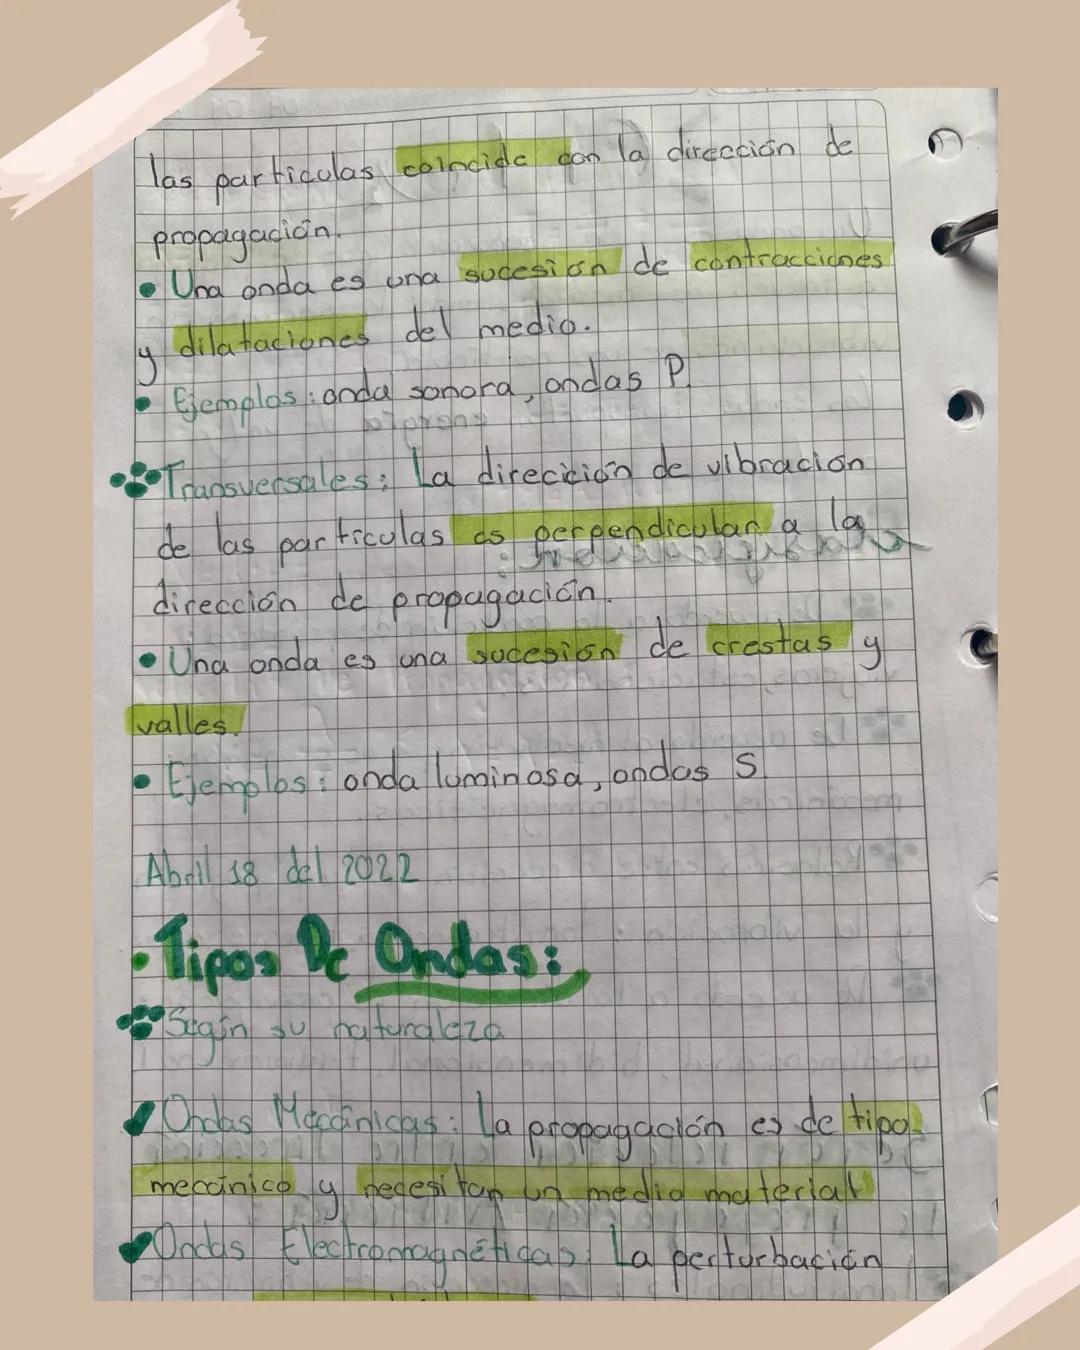 las partículas coincide con la dirección de
propagación.
• Una onda es una sucesión de contracciones
y dilataciones del medio.
• Ejemplos: onda sonora, ondas P.
Transversales: La direcición de vibración
de las partículas es perpendicular a la
dirección de propagación.
• Una onda es una sucesión de crestas y
valles.
• Ejemplos: onda luminosa, ondas S.
Abril 18 del 2022
• Tipos De Ondas:
Según su naturaleza
✓ Ondas Mecánicas: La propagación es de tipo
mecánico y necesitan un medio material
✓ Ondas Electromagnéticas: La perturbación